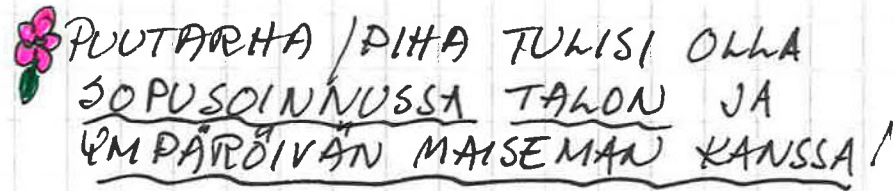 PUUTARHA / PIHA TULISI OLLA
SOPUSOINNUSSA TALON JA
YMPÄRÖIVÄN MAISEMAN KANSSA!